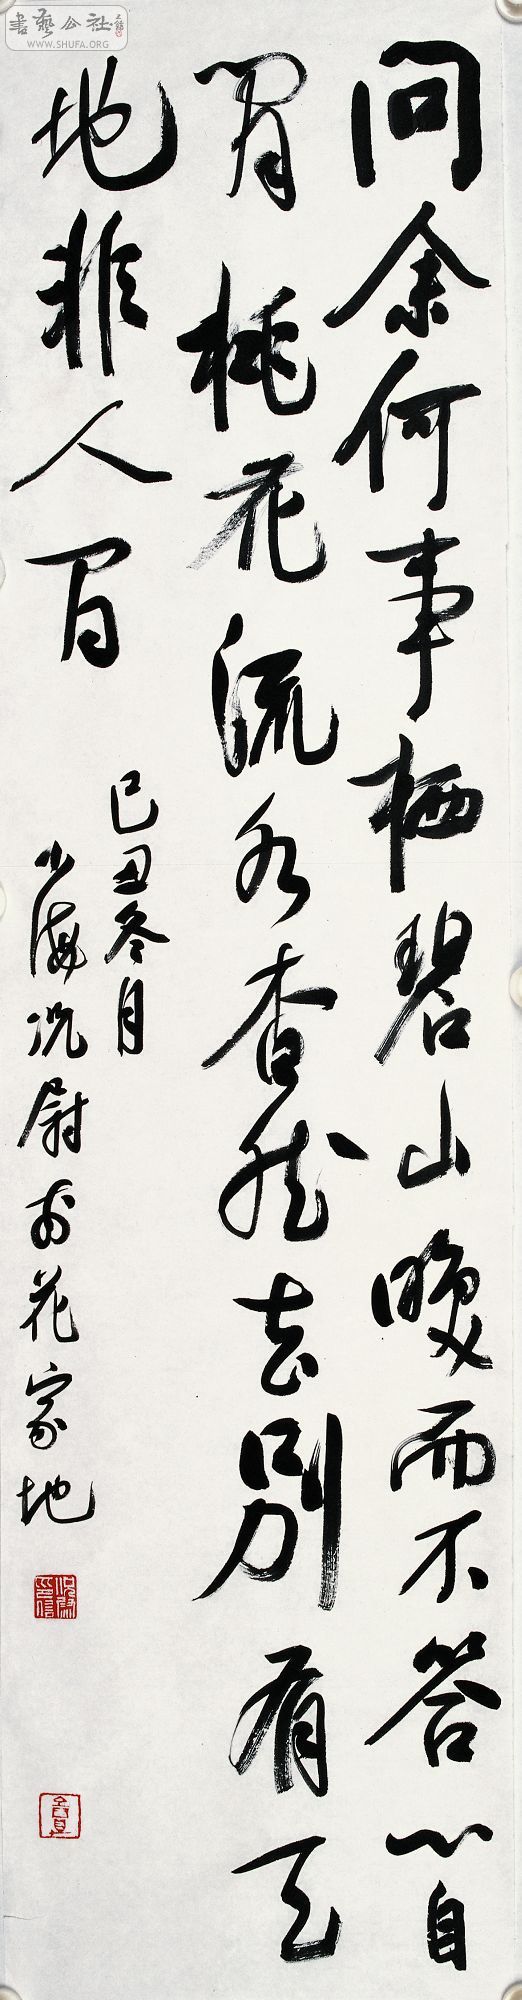 書藝公社
WWW.SHUFA.ORG
問余何事栖碧山咲而不答心自
閒桃花流水杳然去別有天
地非人間
己丑冬月
少海况尉於花家地